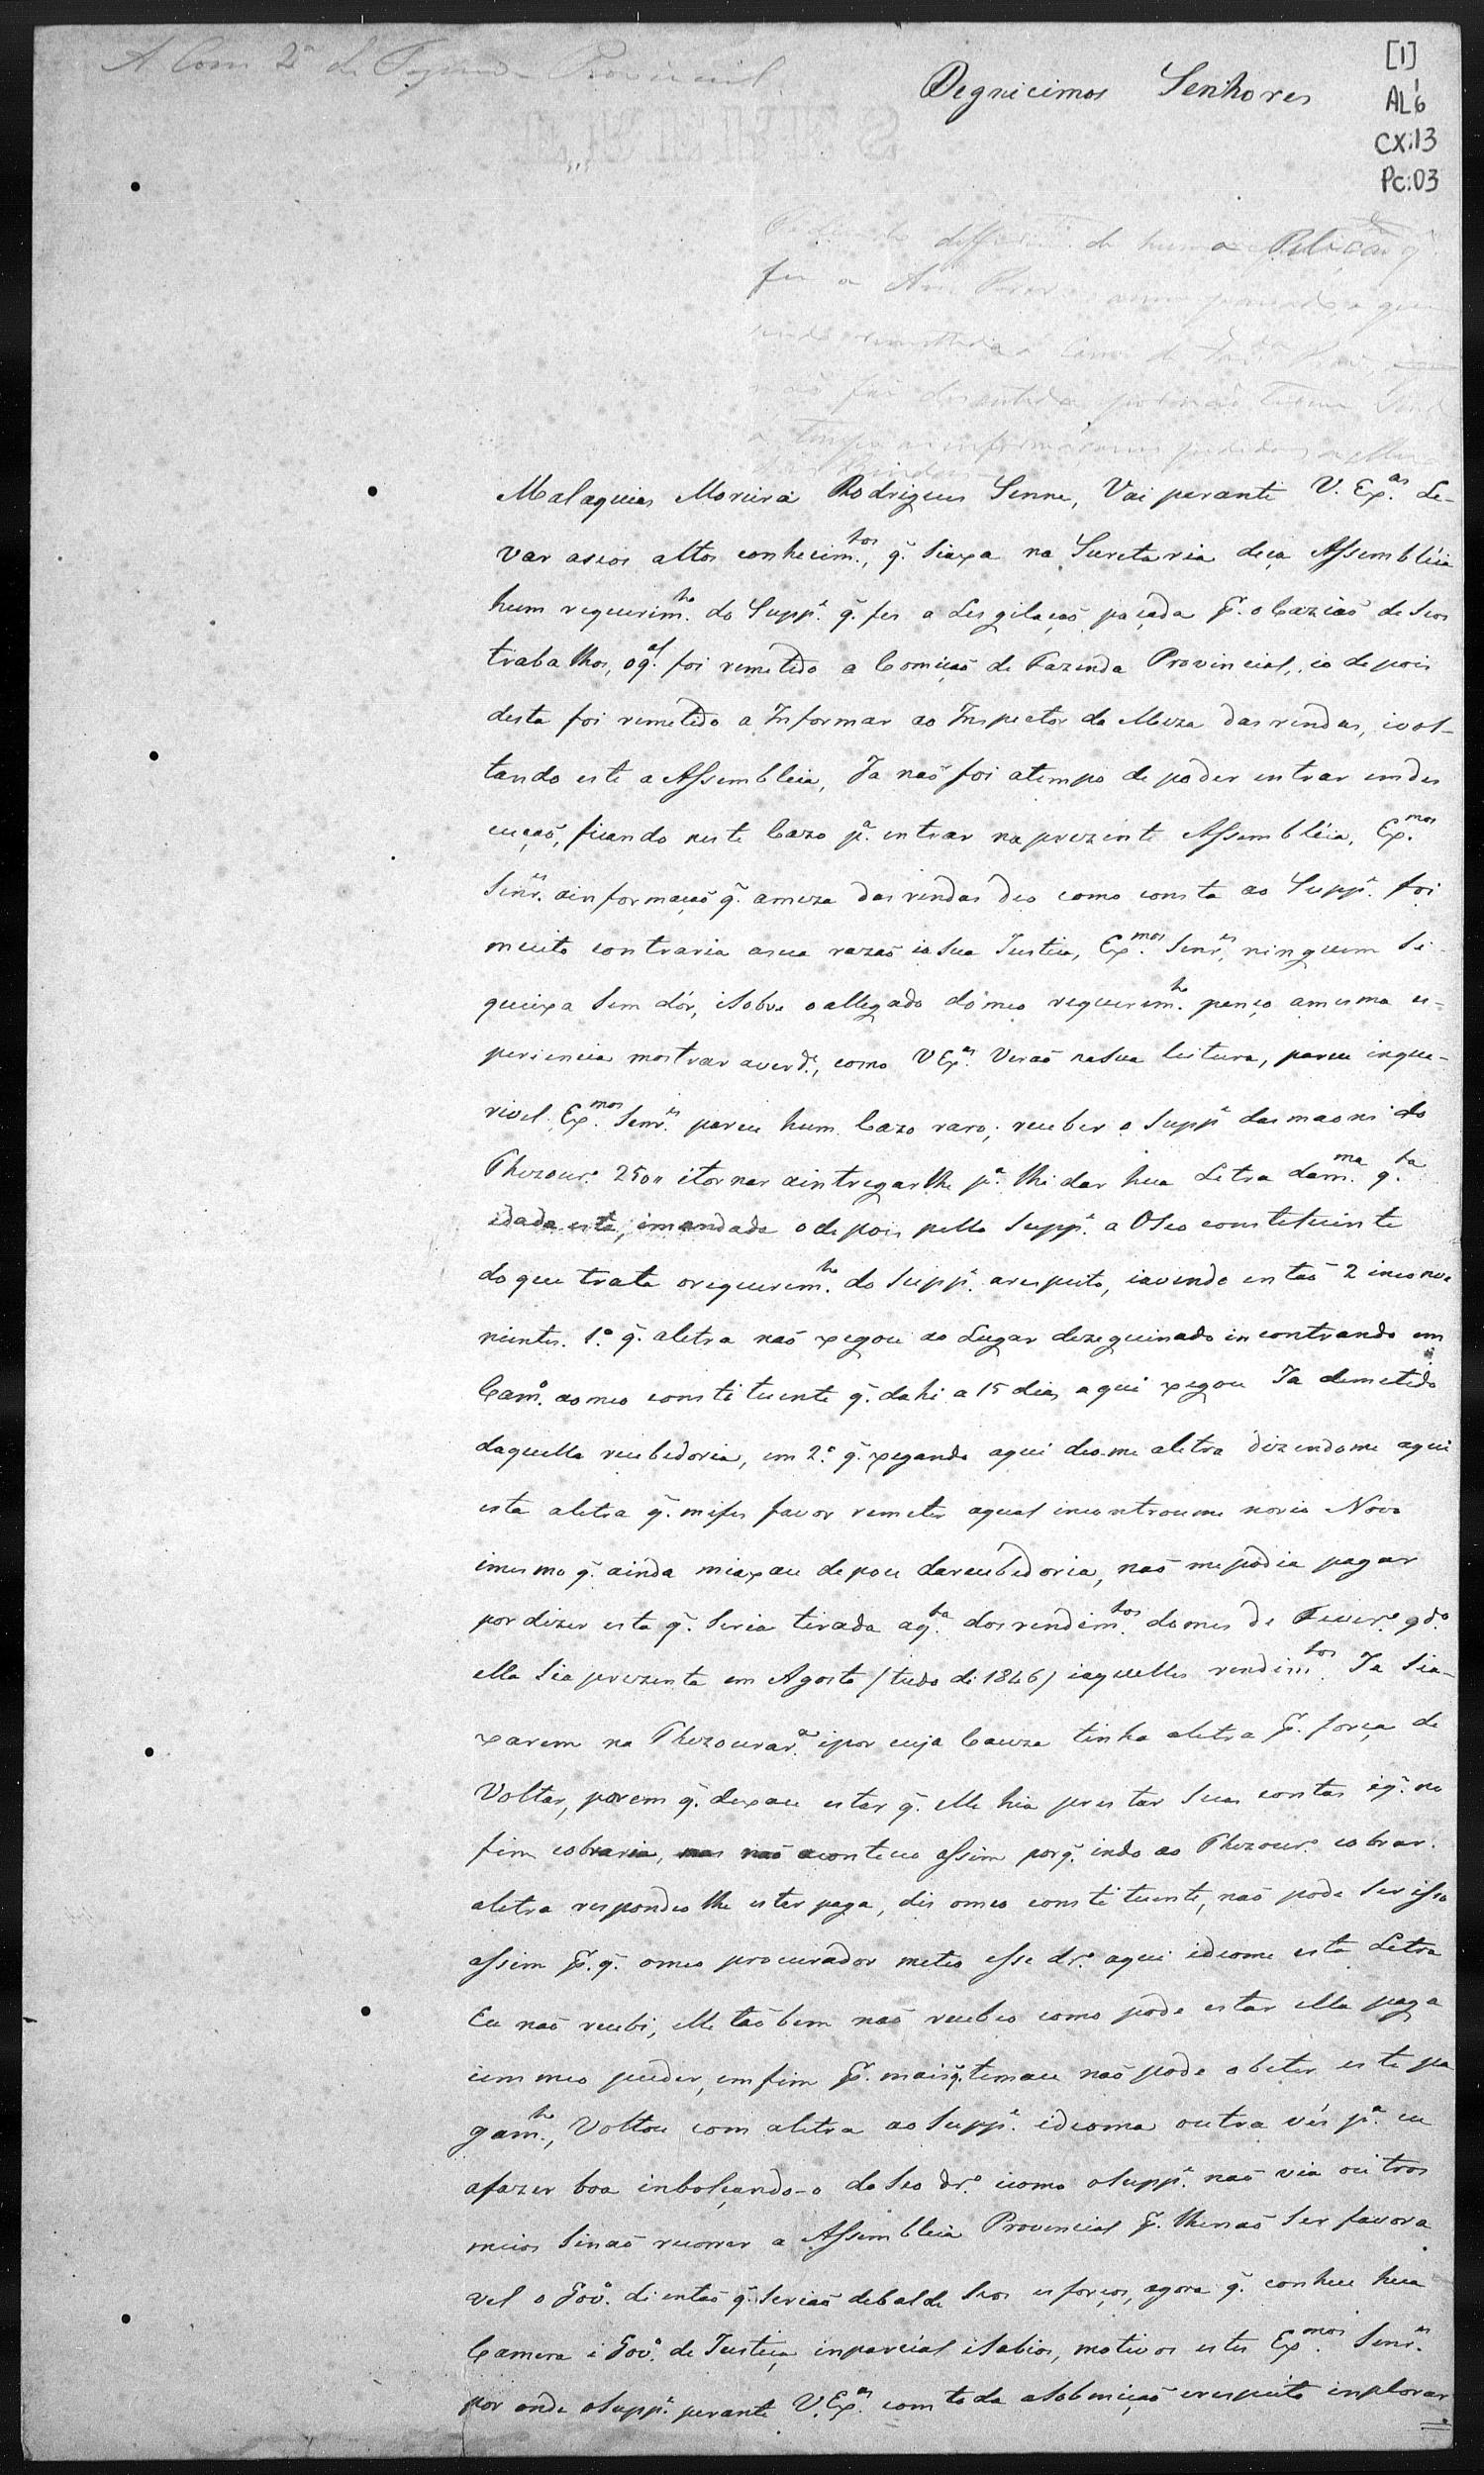 A Com 2ª de Fazenda Provincial
Degnicimos Senhores
[1]
AL 6
CX:13
Pc:03
de huma Petição q̃
fes a
não foi por não
a tempo as informacoens pedidas a Meza
das Rendas
Malaquias Moreira Rodrigues Senne, Vai perante V. Ex.as Le-
var aseos altos conhecim.tos, q̃. Siaxa na Secretaria deça Assembléia
hum requerim.to do Supp.e q̃. fes a Legilação paçada p.r ocazião de Seos
trabalhos, oq.al foi remetido a Comição de Fazenda Provincial, io depois
desta foi remetido a Informar ao Inspector da Meza das rendas, ivol-
tando este a Assembleia, Ja não foi atempo de poder entrar emdes
cução, ficando neste Cazo p.a entrar na prezente Assembléia, Ex.mos
Senr.es ainformação q̃. ameza das rendas deo como consta ao Supp.e foi
muito contraria asua razão ia Sua Justiça, Ex.mos Senr.es ninguem Se
queixa Sem dôr, iSobre oallegado dómeo requerim.to penço amesma es-
periencia mostrar averd.e, como VEx.as Verão naSua leitura, parece inque-
rivel Ex.mos Senr.es parece hum Cazo raro; receber o Supp.e das maons do
Thezour.o 250 itornar aintregarlhe p.a lhe dar hua Letra dam.ma q.ta
idada esta, imandada odepois pello Supp.e a OSeo constetuinte
do que trata orequerem.to do Supp.e arespeito, iavendo então 2 inconve
nientes. 1.º q̃. aletra não xegou ao Lugar dezeguinado incontrando em
Cam.o aomeo constituente q̃. dahi a 15 dias aqui xegou Ja demetido
daquella recebedoria, em 2.º q̃. xegando aqui deo-me aletra dizendome aqui
esta aletra q̃. mifes favor remeter aqual incontroume norio Novo
imesmo q̃. ainda miaxace depoce darecebedoria, não mepodia pagar
por dizer esta q̃. Seria tirada aq.ta dos rendim.tos domes de Fever.o qd.o
ella Sia prezenta em Agosto /tudo de 1846/ iaquelles rendim.tos Ja Sia-
xarem na Thezourar.a ipor cuja Cauza tinha aletra p.r força de
Voltar, porem q̃. dexace estar q̃. elle hia prestar Suas contas iq̃. no
fim cobraria, mas não aconteceo assim porq̃. indo ao Thezour.o cobrar
aletra respondeolhe estar paga, dis omeo constituente, não pode Ser isso
assim p.r q̃. omeo procurador meteo esse dr.o aqui ideome esta Letra
Eu não recebi, elle tãobem não recebeo como pode estar ella paga
iem meo puder, emfim p.r maisq̃. temace não pode obeter este pa
gam.to, Voltou com aletra ao Supp.e ideoma outra vês p.a eu
afazer boa inbolçando-o do Seo dr.o icomo oSupp.e não via outros
meios Sinão recorrer a Assembleia Provincial p.r lhenão Ser favora
vel o Gov.o di então q̃. Serião debalde Seos esforços, agora q̃. conhece hua
Camera i Gov.o de Justiça inparcial iSabios, motivos estes Ex.mos Senr.es
por onde oSupp.e perante V.Ex.as com toda aSobmição erespeito inplorar